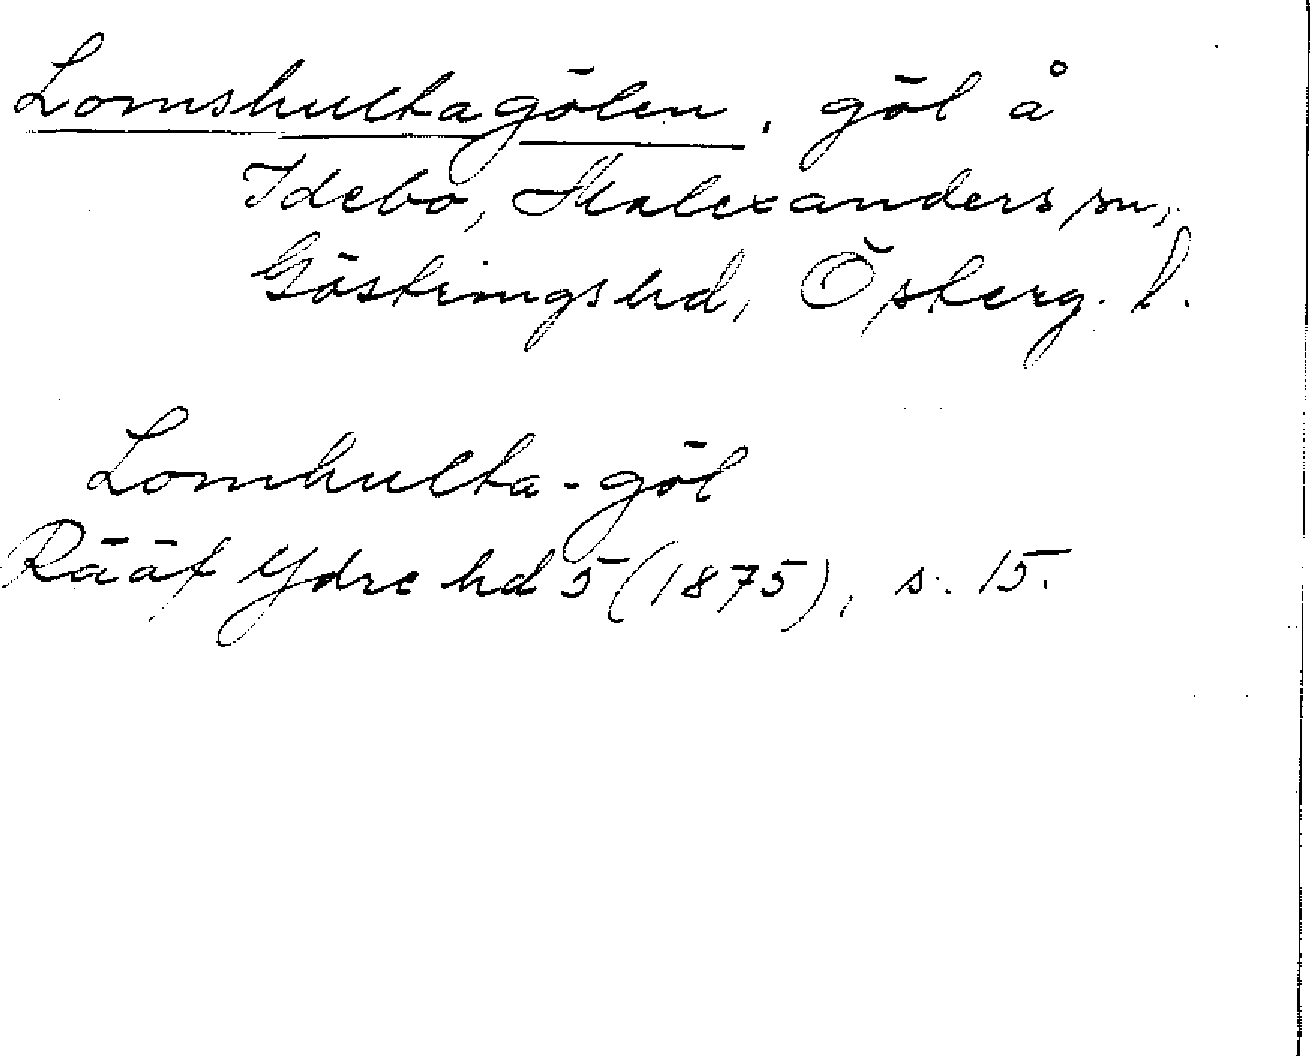 Lomshultagölen, göl å
Idebo, Malexanders sn,
Göstrings hd, Österg. l.
Lomhulta-göl
Rääf Ydre hd 5 (1875), s. 15.